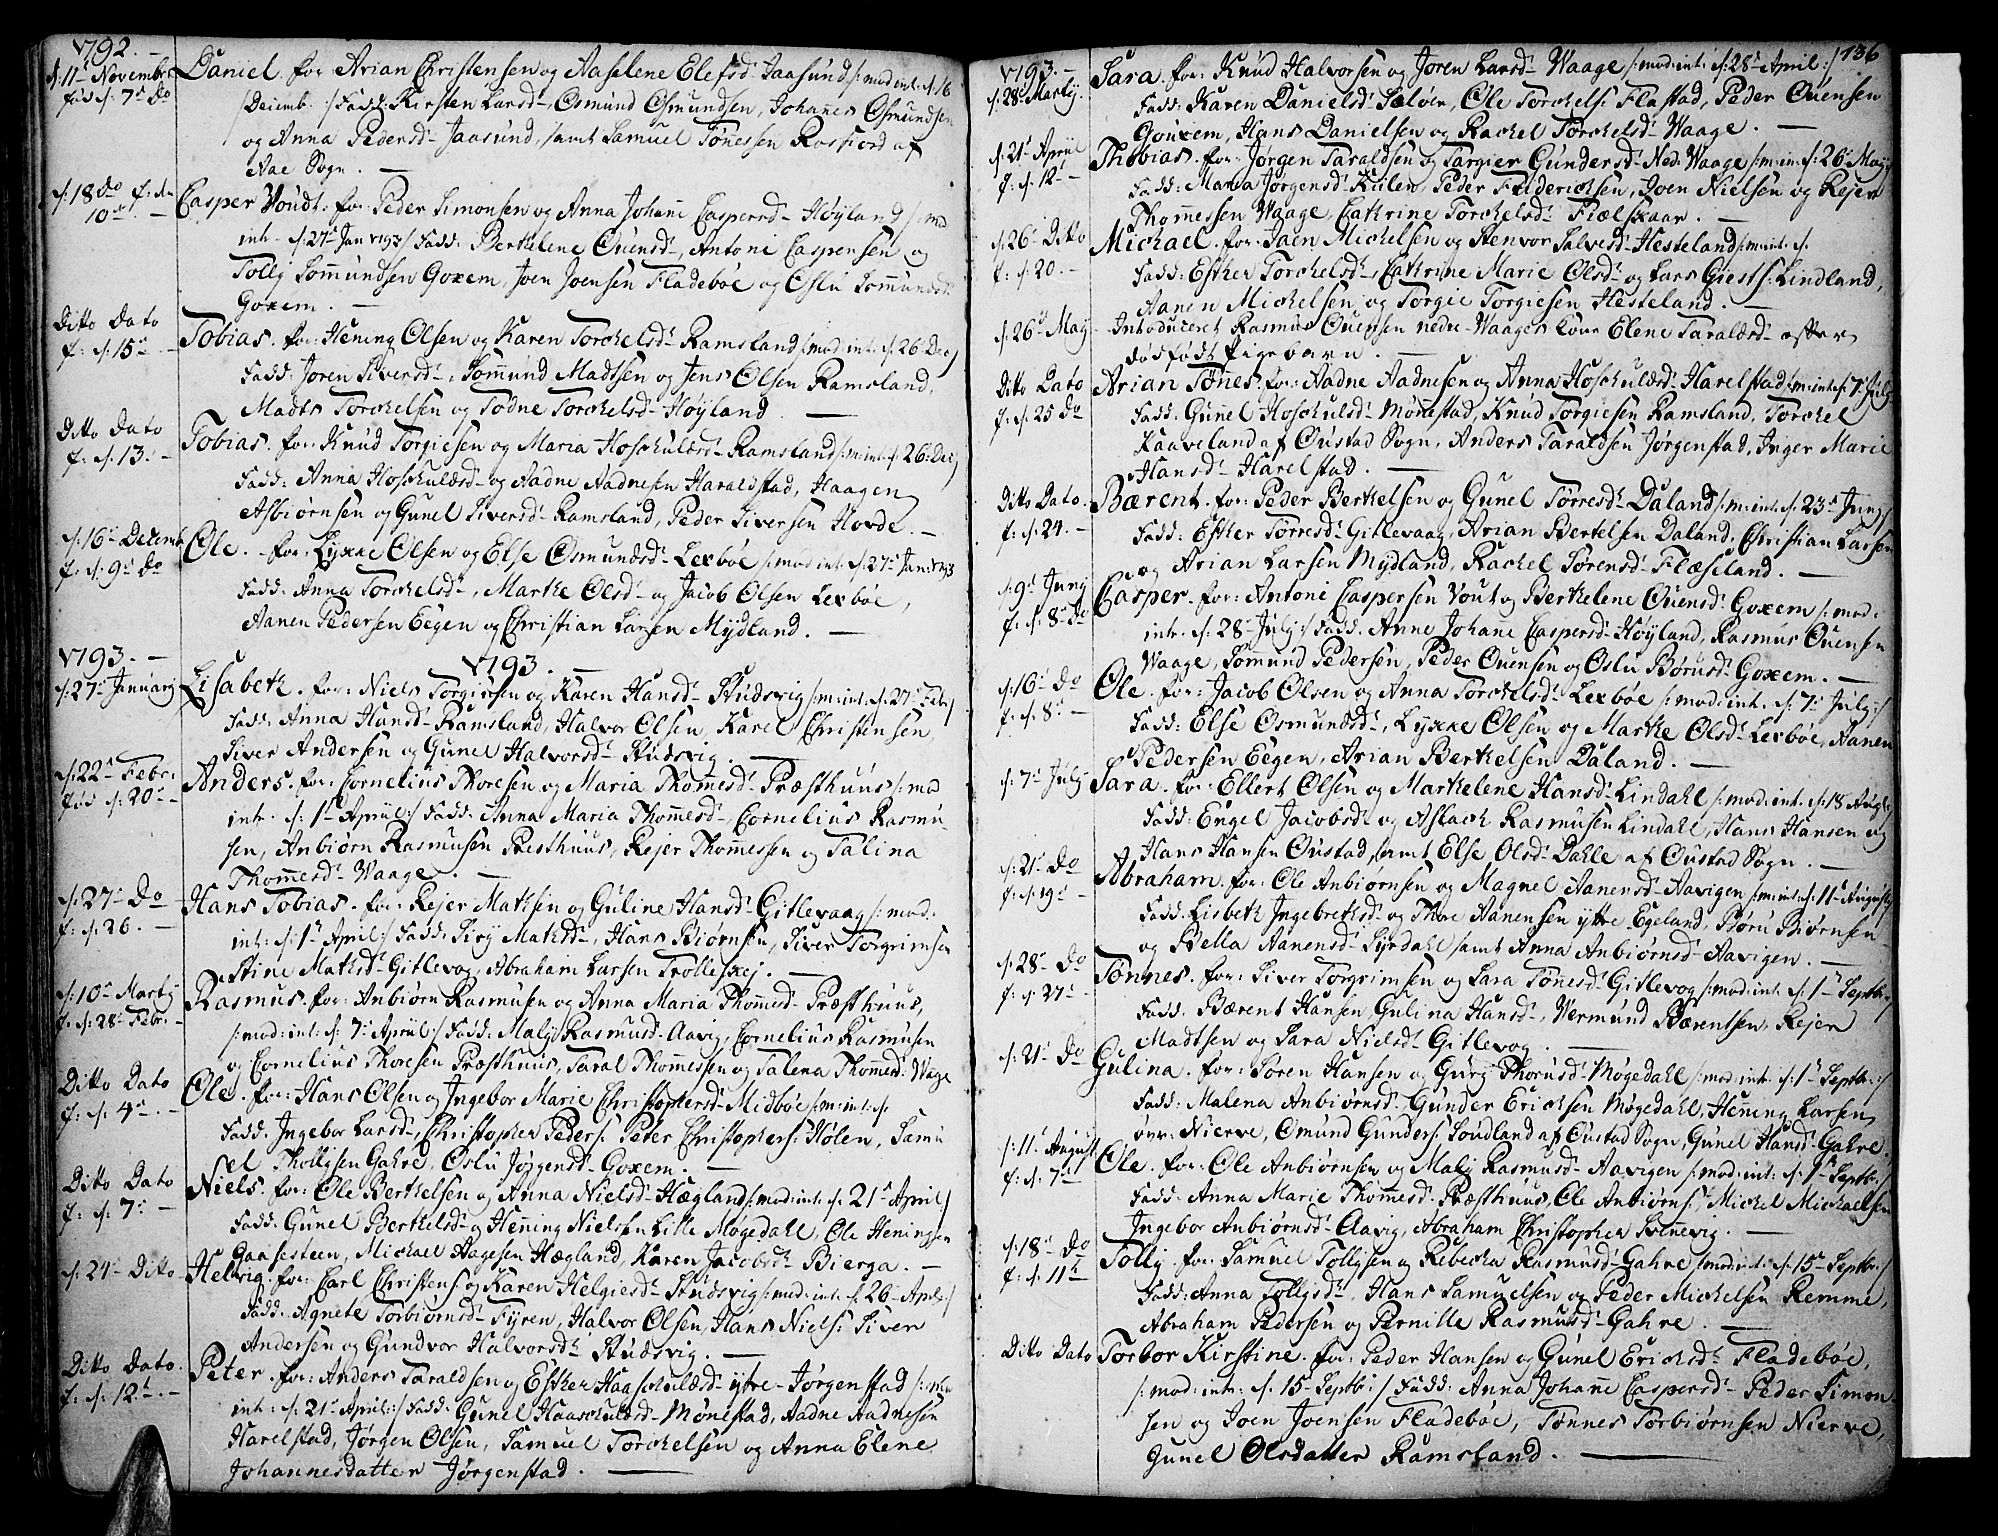 1792. —
d: 11t Novembr. Daniel. for Arian Christensen og Aaselene Elefsd: Jaasund /: mod: int: d: 16
fød d: 7de Do Decemb: / Fadd: Kirsten Larsd-, Osmund Osmundsen, Johannes Osmundsen
og Anna Pedersd- Jaasund, samt Samuel Tønessen Rosfiord af
Aae Sogn. —
d: 18 do f: dn Casper Voudt. for: Peder Simonsen og Anna Johane Caspersd- Høyland /: mod
10de — intr. d: 27t Jan 1793/ Fadd: Berthelene Ouensd-, Antoni Caspersen og
Tollij Lommundsen Goxem, Joen Joensen Fladebøe og Oslu Lommundsd:
Goxem. —
Ditto Dato Tobias. for: Hening Olsen og Karen Torchelsd- Ramsland /: mod: int: d: 26 Dec/
f: d: 15de — Fadd: Joren Siversd-, Lommund Madtsen og Jens Olsen Ramsland,
Madts Torchelsen og Todne Torchelsd- Høyland. —
Ditto Dato Tobias. for: Knud Torgiesen og Maria Hoschuldsd- Ramsland /: m: int: d: 26: Dec/
f: d: 13. — Fadd: Anna Hoschuldsd- og Aadne Aadnesen Haraldstad, Haagen
Asbiørnsen og Gunel Siversd- Ramsland, Peder Siversen Hovde. —
d: 16de Decemb: Ole. — for: Lyxke Olsen og Else Osmundsd- Lexbøe /: mod: int: d: 27de Jan: 1793
f: d: 9de Do Fadd: Anna Torchelsd-, Marthe Olsd- og Jacob Olsen Lexbøe,
Aanen Pedersen Eegen og Christian Larsen Mydland. —
1793. — 1793. —
d: 27de Januarij Lisabeth. for: Niels Torgiersen og Karen Hansd- Studsvig /: m: int: d: 27de Febr/
Fadd: Anna Hansd- Ramsland, Halvor Olsen, Karel Christensen,
Siver Andersen og Gunel Halvorsd- Studsvig. —
d: 22de Febr: Anders. for: Cornelius Thoresen og Maria Thomesd- Præsthuus /: mod
fød d: 20de — intr. d: 1de Apriil :/ Fadd: Anna Maria Thomesd- Cornelius Rasmu-
sen, Anbiørn Rasmusen Presthuus, Rejer Thomessen og Talina
Thomesd- Waage. —
d: 27de Do Hans Tobias. for: Rejer Mathsen og Guline Hansd- Gitlevaag /: mod:
f: d: 26. — int: d: 1de April :/ Fadd: Sirj Mathsd-, Hans Biørnsen, Siver Torgrimsen
Stine Mathsd- Gitlevog, Abraham Larsen Trolleskej. —
d: 10de Martij Rasmus. for: Anbiørn Rasmusen og Anna Maria Thomesd- Præsthuus,
f: d: 28de Febr. — /: mod: int: d: 7de Apriil :/ Fadd: Malj Rasmusd- Aavig, Cornelius Rasmusen
og Cornelius Thoresen Præsthuus, Taral Thommessen og Talena Thomesd: Wage
Ditto Dato Ole. for: Hans Olsen og Ingebor Marie Christophersd- Midbøe /: m: int: d:
f: d: 4de — Fadd: Ingebor Larsd-, Christopher Peders: Peter Christophers: Holen, Samu
el Thollysen Gahre, Oslu Jørgensd- Goxem. —
Ditto Dato Niels. for: Ole Berthelsen og Anna Nielsd- Hægland /: mod: int: d: 21de April/
f: d: 7de — Fadd: Gunel Berthelsd- og Hening Nielsen Lille Møgedahl, Ole Heningsen
Gaasesteen, Michael Aagesen Hægland, Karen Jacobsd- Bierga. —
d: 24de Ditto Helvig. for: Carl Christens: og Karen Helgiesd- Studsvig /: mod: int: d: 26de April :/
Fadd: Agnete Torbiørnsd- Fyren, Halvor Olsen, Hans Niels: Siver
Andersen og Gundvor Halvorsd- Studsvig. —
Ditto Dato. Peter. for: Anders Taraldsen og Esther Haaschuldsd- ytre- Jørgenstad /: mod
f: d: 12de — int: d: 21de April :/ Fadd: Gunel Haaschuldsd- Mønestad, Aadne Aadnesen
Harelstad, Jørgen Olsen, Samuel Torchelsen og Anna Elene
Johannesdatter Jørgenstad. —
136
1793. — Sara. for: Knud Halvorsen og Joren Larsd- Waage /: mod: int: d: 28de April :/
d: 28de Martij. Fadd: Karen Danielsd- Seløer, Ole Torchels: Flastad, Peder Ouensen
Goxem, Hans Danielsen og Rachel Torchelsd- Waage. —
d: 21de Apriil Thobias. for: Jørgen Taraldsen og Targier Gundersd- Ned: Waage /: m: in: d: 26 Maj:
f: d: 12de — Fadd: Maria Jørgensd- Kiilen, Peder Friderichsen, Joen Nielsen og Rejer
Thomessen Waage, Cathrine Torchelsd- Fiælskaar. —
d: 26de Ditto Michael. for: Joen Michelsen og Stenvor Salvesd- Hesteland /: m: int: d:
f: d: 20. — Fadd: Esther Torchelsd-, Cathrine Marie Olsd- og Lars Giests: Lindland,
Aanen Michelsen og Torgie Torgiesen Hesteland. —
d: 26de Maj Introduceret Rasmus Ouensen nedre- Waages kone Elene Taraldsd- efter
dødfødt Pigebarn. —
Ditto Dato Arian Tønes. for: Aadne Aadnesen og Anna Hoschuldsd- Harelstad /: m: int: d: 7de Julj
f: d: 25 do Fadd: Gunel Hoschulsd- Mønnestad, Knud Torgiesen Ramsland, Torchel
Kaaveland af Oustad Sogn, Anders Taraldsen Jørgenstad, Inger Marie
Hansd- Harelstad. —
Ditto Dato. Bærent. for: Peder Berthelsen og Gunel Torresd- Daland /: m: int: d: 23de Junj/
f: d: 24. — Fadd: Esther Torresd- Gitlevaag, Arian Bertelsen Daland, Christian Larsen
og Arian Larsen Mydland, Rachel Sørensd- Flæseland. —
d: 9de Junj Casper. for: Antoni Caspersen Vout og Berthelene Ouensd- Goxem /: mod:
f: d: 8de Do intr. d: 28de Julj :/ Fadd: Anne Johane Caspersd- Høyland, Rasmus Ouensen
Waage, Lommund Pedersen, Peder Ouensen og Oslu Børusd- Goxem. —
d: 16de Do Ole. for: Jacob Olsen og Anna Torchelsd- Lexbøe /: mod: int. d: 7de Julj :/
f: d: 8de — Fadd: Else Osmundsd-, Lyxke Olsen og Marthe Olsd- Lexbøe, Aanen
Pedersen Eegen, Arian Berthelsen Daland. —
d: 7de Julj Sara. for: Ellert Olsen og Marthelene Hansd- Lindahl /: mod: int: d: 18 Aug:/
Fadd: Engel Jacobsd- og Aslach Rasmusen Lindahl, Hans Hansen og
Hans Hansen Oustad, samt Else Olsd- Dahle af Oustad Sogn. —
d: 21de Do Abraham. for: Ole Anbiørnsen og Magnel Aanensd- Aavigen /: m: int: d: 11de Augustj
f: d: 19de — Fadd: Lisbeth Ingebrethsd- og Thore Aanensen ytre Egeland, Børu Biørnsen
og Bella Aanensd- Syrdahl samt Anna Anbiørnsd- Aavigen. —
d: 28de Do Tønnes. for: Siver Torgrimsen og Sara Tønesd- Gitlevog /: mod: int: d: 1de Septbr:/
f: d: 27de — Fadd: Bærent Hansen, Gulina Hansd-, Vermund Bærentsen, Rejer
Madtsen og Sara Nielsd- Gitlevog. —
d: 21de Do Gulina. for: Søren Hansen og Gurj Thorusd- Møgedahl /: mod: int: d: 1de Septbr:/
Fadd: Malena Anbiørnsd- Gunder Erichsen Møgedahl, Henning Larsen
øvr: Nierve, Omund Gunders: Soudland af Oustad Sogn, Gunel Hansd- Gahre.
d: 11de August Ole. for: Ole Anbiørnsen og Malj Rasmusd- Aavigen /: mod: int: d: 1de Septbr:/
f: d: 7de — Fadd: Anna Marie Thomesd- Præsthuus, Ole Anbiørns:, Michel Michaelsen
Ingebor Anbiørnsd- Aavig, Abraham Christopher Svenevig. —
d: 18de Do Tollij for: Samuel Tollysen og Rebecha Rasmusd- Gahre /: mod: int: d: 15de Septbr:/
f: d: 11te Fadd: Anna Tollysd-, Hans Samuelsen og Peder Michelsen Remme,
Abraham Pedersen og Pernille Rasmusd- Gahre. —
Ditto Dato Torbor Kirstine. for: Peder Hansen og Gunel Erichsd- Fladebøe,
/: mod: int: d: 15de Septbr :/ Fadd: Anna Johane Caspersd- Peder Simon-
sen og Joen Joensen Fladebøe, Tønnes Torbiørnsen Nierve,
Gunel Olsdatter Ramsland. —